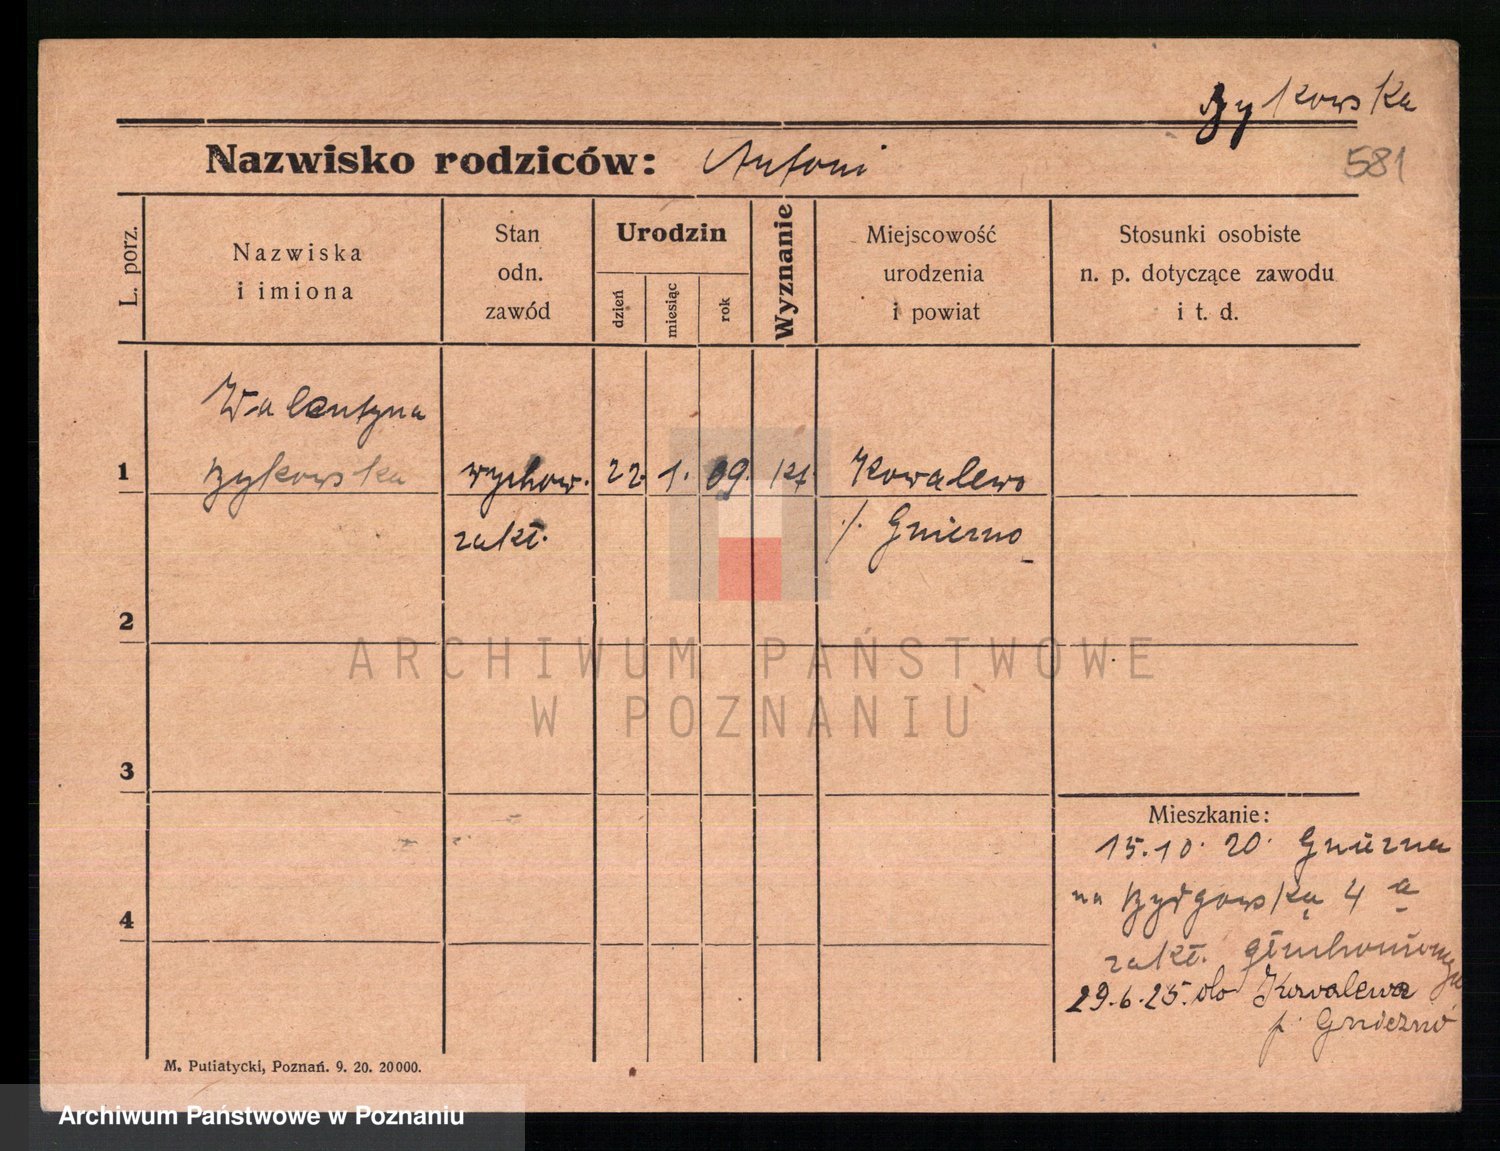 Bykowska
581
Nazwisko rodziców: Antoni
L. porz.
Nazwiska
i imiona
Stan
odn.
zawód
Urodzin
dzień
miesiąc
rok
Wyznanie
Miejscowość
urodzenia
i powiat
Stosunki osobiste
n. p. dotyczące zawodu
i t. d.
Walentyna
1 Bykowska wychow. 22. 1. 09. kt. Kowalewo
zakł. /. Gniezno
2
3
4
ARCHIWUM PAŃSTWOWE
W POZNANIU
Mieszkanie:
15.10.20. Gniezna
na Bydgowską 4 a
zakł. głuchoniemych
29.6.25. do Kowalewa
p. Gniezno
M. Putiatycki, Poznań. 9. 20. 20000.
Archiwum Państwowe w Poznaniu